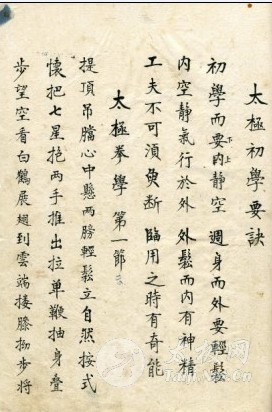 太極初學要訣
初學而要下内上静空 週身而外要輕鬆
内空静氣行於外 外鬆而内有神精
工夫不可須臾断 臨用之時有奇能
太極拳學 第一節
提頂吊膅心中懸两膀輕鬆立自然按式
懷把七星抱两手推出拉单鞭抽身叠
步望空看白鶴展翅到雲端摟膝拗步將